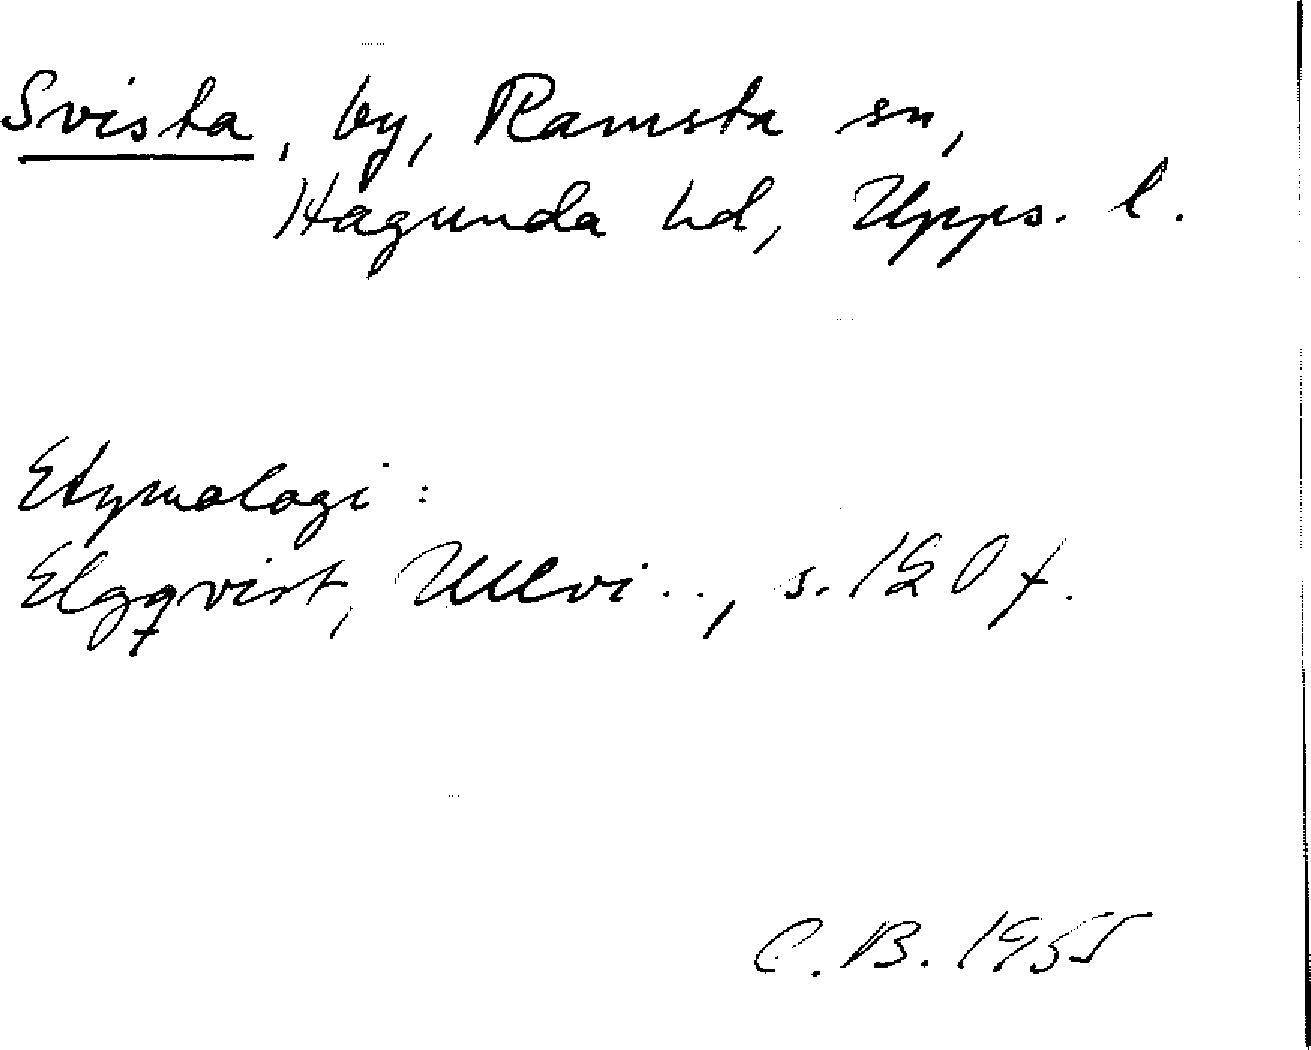 Svista, by, Ramsta sn,
Hagunda hd, Upps. l.
Etymologi:
Elgqvist, Ullvi.., s. 120 f.
C. B. 1955